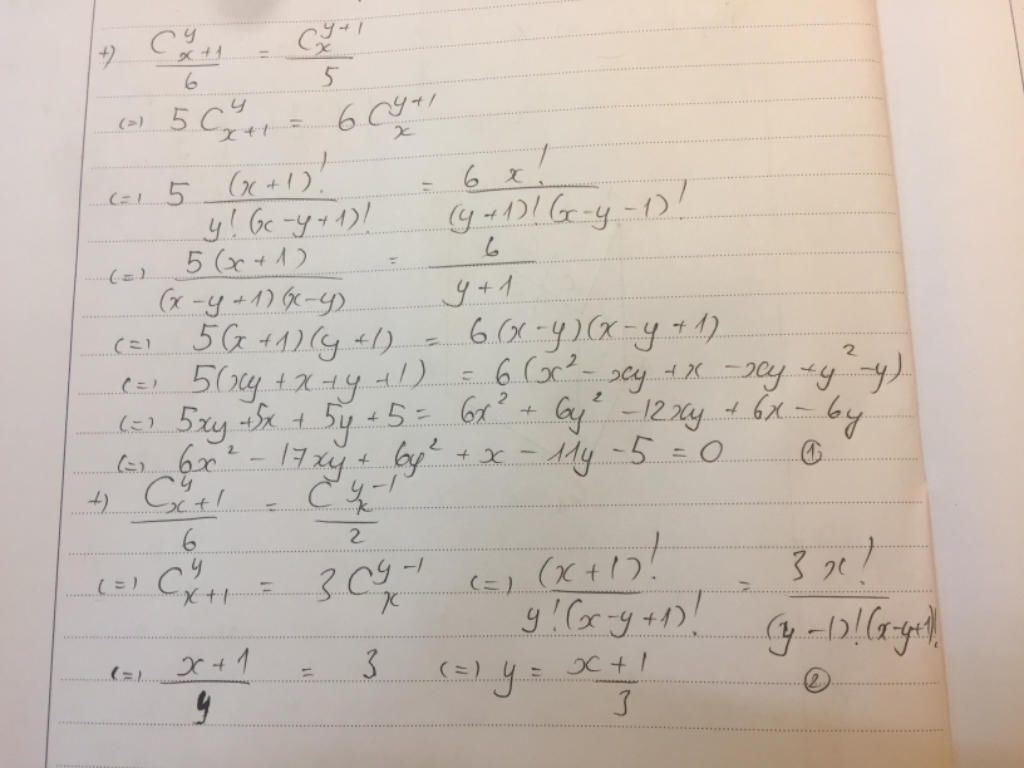 +) C_{x+1}^{y}/6 = C_{x}^{y+1}/5
(=) 5 C_{x+1}^{y} = 6 C_{x}^{y+1}
(=) 5 (x+1)!/(y!(x-y+1)!) = 6 x!/((y+1)!(x-y-1)!)
(=) 5(x+1)/((x-y+1)(x-y)) = 6/(y+1)
(=) 5(x+1)(y+1) = 6(x-y)(x-y+1)
(=) 5(xy+x+y+1) = 6(x² - xy + x - xy + y² - y)
(=) 5xy + 5x + 5y + 5 = 6x² + 6y² - 12xy + 6x - 6y
(=) 6x² - 17xy + 6y² + x - 11y - 5 = 0 ①
+) C_{x+1}^{y}/6 = C_{x}^{y-1}/2
(=) C_{x+1}^{y} = 3 C_{x}^{y-1} (=) (x+1)!/(y!(x-y+1)!) = 3x!/((y-1)!(x-y+1)!)
(=) (x+1)/y = 3 (=) y = (x+1)/3 ②